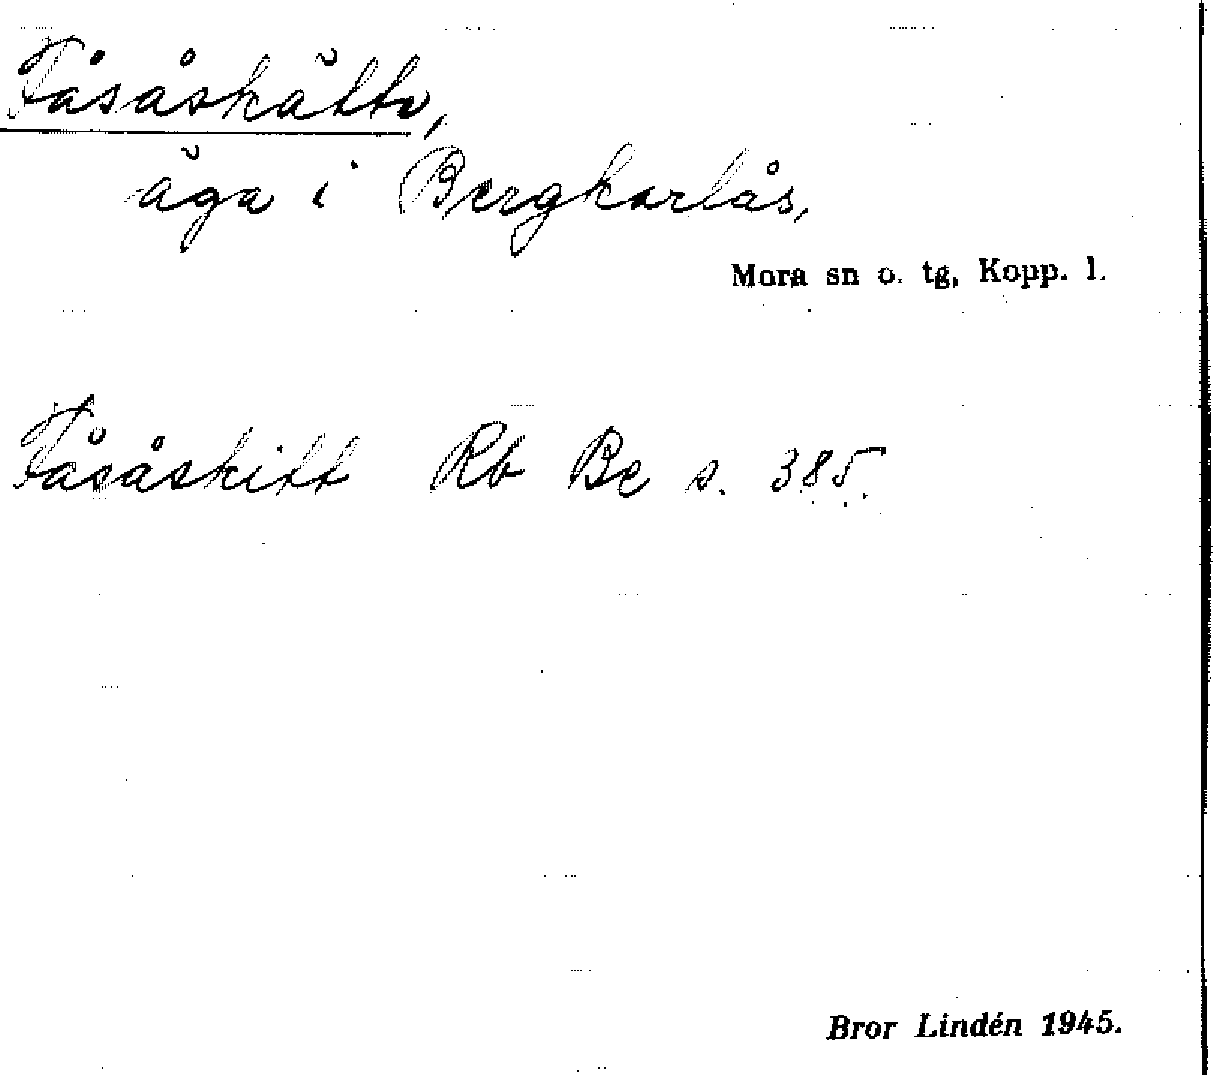 Fåsåskätto,
äga i Bergkarlås,
Mora sn o. tg, Kopp. l.
Fåsåskitt Rb Be s. 385.
Bror Lindén 1945.